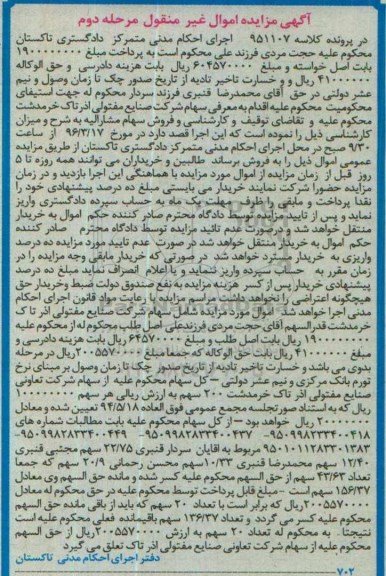 آگهی مزایده اموال غیر منقول مرحله دوم
در پرونده کلاسه ۹۵۱۱۰۷ اجرای احکام مدنی متمرکز دادگستری تاکستان
محکوم علیه حجت مردی فرزند علی محکوم است به پرداخت مبلغ ۱۹۰۰۰۰۰۰۰
بابت اصل خواسته و مبلغ ۶۰۴۵۷۰۰۰۰ ریال بابت هزینه دادرسی و حق الوکاله
۴۱۰۰۰۰۰۰ ریال و خسارت تاخیر تادیه از تاریخ صدور چک تا زمان وصول و نیم
عشر دولتی در حق آقای محمدرضا قنبری فرزند سردار محکوم له جهت استیفای
محکومیت محکوم علیه اقدام به معرفی سهام شرکت صنایع مفتولی اذر تاک خرمدشت
محکوم علیه و تقاضای توقیف و کارشناسی و فروش سهام مشارالیه به شرح و میزان
کارشناسی ذیل را نموده است که این اجرا قصد دارد در مورخ ۹۶/۳/۱۷ از ساعت
۹/۳۰ صبح در محل اجرای احکام مدنی متمرکز دادگستری تاکستان از طریق مزایده
عمومی اموال ذیل را به فروش برساند طالبین و خریداران می توانند همه روزه تا ۵
روز قبل از زمان مزایده از اموال مورد مزایده با هماهنگی این اجرا بازدید و در زمان
مزایده حضورا شرکت نمایند خریدار می بایستی مبلغ ده درصد پیشنهادی خود را
نقدا پرداخت و مابقی را ظرف مهلت یک ماه به حساب سپرده دادگستری واریز
نماید و پس از تایید مزایده توسط دادگاه محترم صادر کننده حکم اموال به خریدار
منتقل خواهد شد و درصورت عدم تائید مزایده توسط دادگاه محترم صادر کننده
حکم اموال به خریدار منتقل خواهد شد در صورت عدم تایید مورد مزایده ده درصد
واریزی به خریدار مسترد خواهد شد در صورتی که خریدار مابقی وجه مزایده را در
زمان مقرر به حساب سپرده واریز ننماید و یا اعلام انصراف نماید مبلغ ده درصد
پیشنهادی خریدار پس از کسر هزینه مزایده به نفع صندوق دولت ضبط وخریدار حق
هیچگونه اعتراضی را نخواهد داشت مراسم مزایده با رعایت مواد قانون اجرای احکام
مدنی اجرا خواهد شد اموال مورد مزایده شامل سهام شرکت صنایع مفتولی اذر تاک
خرمدشت قدرالسهم آقای حجت مردی فرزندعلی اصل طلب محکوم له از محکوم علیه
۱۹۰۰۰۰۰۰۰ ریال بابت اصل طلب و مبلغ ۶۴۵۷۰۰۰ ریال بابت هزینه دادرسی و
مبلغ ۴۱۰۰۰۰۰ ریال بابت حق الوکاله که جمعا مبلغ ۲۰۰۵۵۷۰۰۰ ریال در مرحله
بدوی می باشد و خسارت تاخیر تادیه از تاریخ صدور چک تا زمان وصول بر مبنای نرخ
تورم بانک مرکزی و نیم عشر دولتی – کل سهام محکوم علیه از سهام شرکت تعاونی
صنایع مفتولی اذر تاک خرمدشت ۲۰۰ سهم به ارزش ریالی هر سهم ۱۰۰۰۰۰۰۰
ریال که به استناد صورتجلسه مجمع عمومی فوق العاده ۹۴/۵/۱۸ تعیین شده و معادل
۲۰۰۰۰۰۰۰۰۰ ریال خواهد بود – از کل سهام محکوم علیه بابت مطالبات شماره های
۹۵۰۹۹۸۲۸۳۳۴۰۰۴۱۸- ۹۵۰۹۹۸۲۸۳۳۴۰۰۴۳۷- ۹۵۰۹۹۸۲۸۳۳۴۰۰۴۴۹-
۹۵۰۱۰۱۱۲۸۳۳۰۱۳۸۳ مربوط به اقایان سردار قنبری ۲۲/۷۵ سهم مجتبی قنبری
۱۲/۴۰ سهم محمدرضا قنبری ۱۰/۳۳سهم محسن رحمانی ۲۰/۹ سهم که جمعا
تعداد ۴۳/۶۳ سهم از حق السهم محکوم علیه کسر شده و مانده حق السهم وی معادل
۱۵۶/۳۷ سهم است – مبلغ قابل پرداخت توسط محکوم علیه در حق محکوم له معادل
۲۰۰۵۵۷۰۰۰ریال که برابر است با تعداد ۲۰ سهم که باید از باقی مانده حق السهم
محکوم علیه کسر می گردد و تعداد ۱۳۶/۳۷ سهم باقیمانده فعلی محکوم علیه است
نتیجتا به محکوم له تعداد ۲۰ سهم به ارزش ۲۰۰۵۵۷۰۰۰ریال از حق السهم
محکوم علیه از سهام شرکت تعاونی صنایع مفتولی اذر تاک تعلق می گیرد
دفتر اجرای احکام مدنی تاکستان
۷۰۲